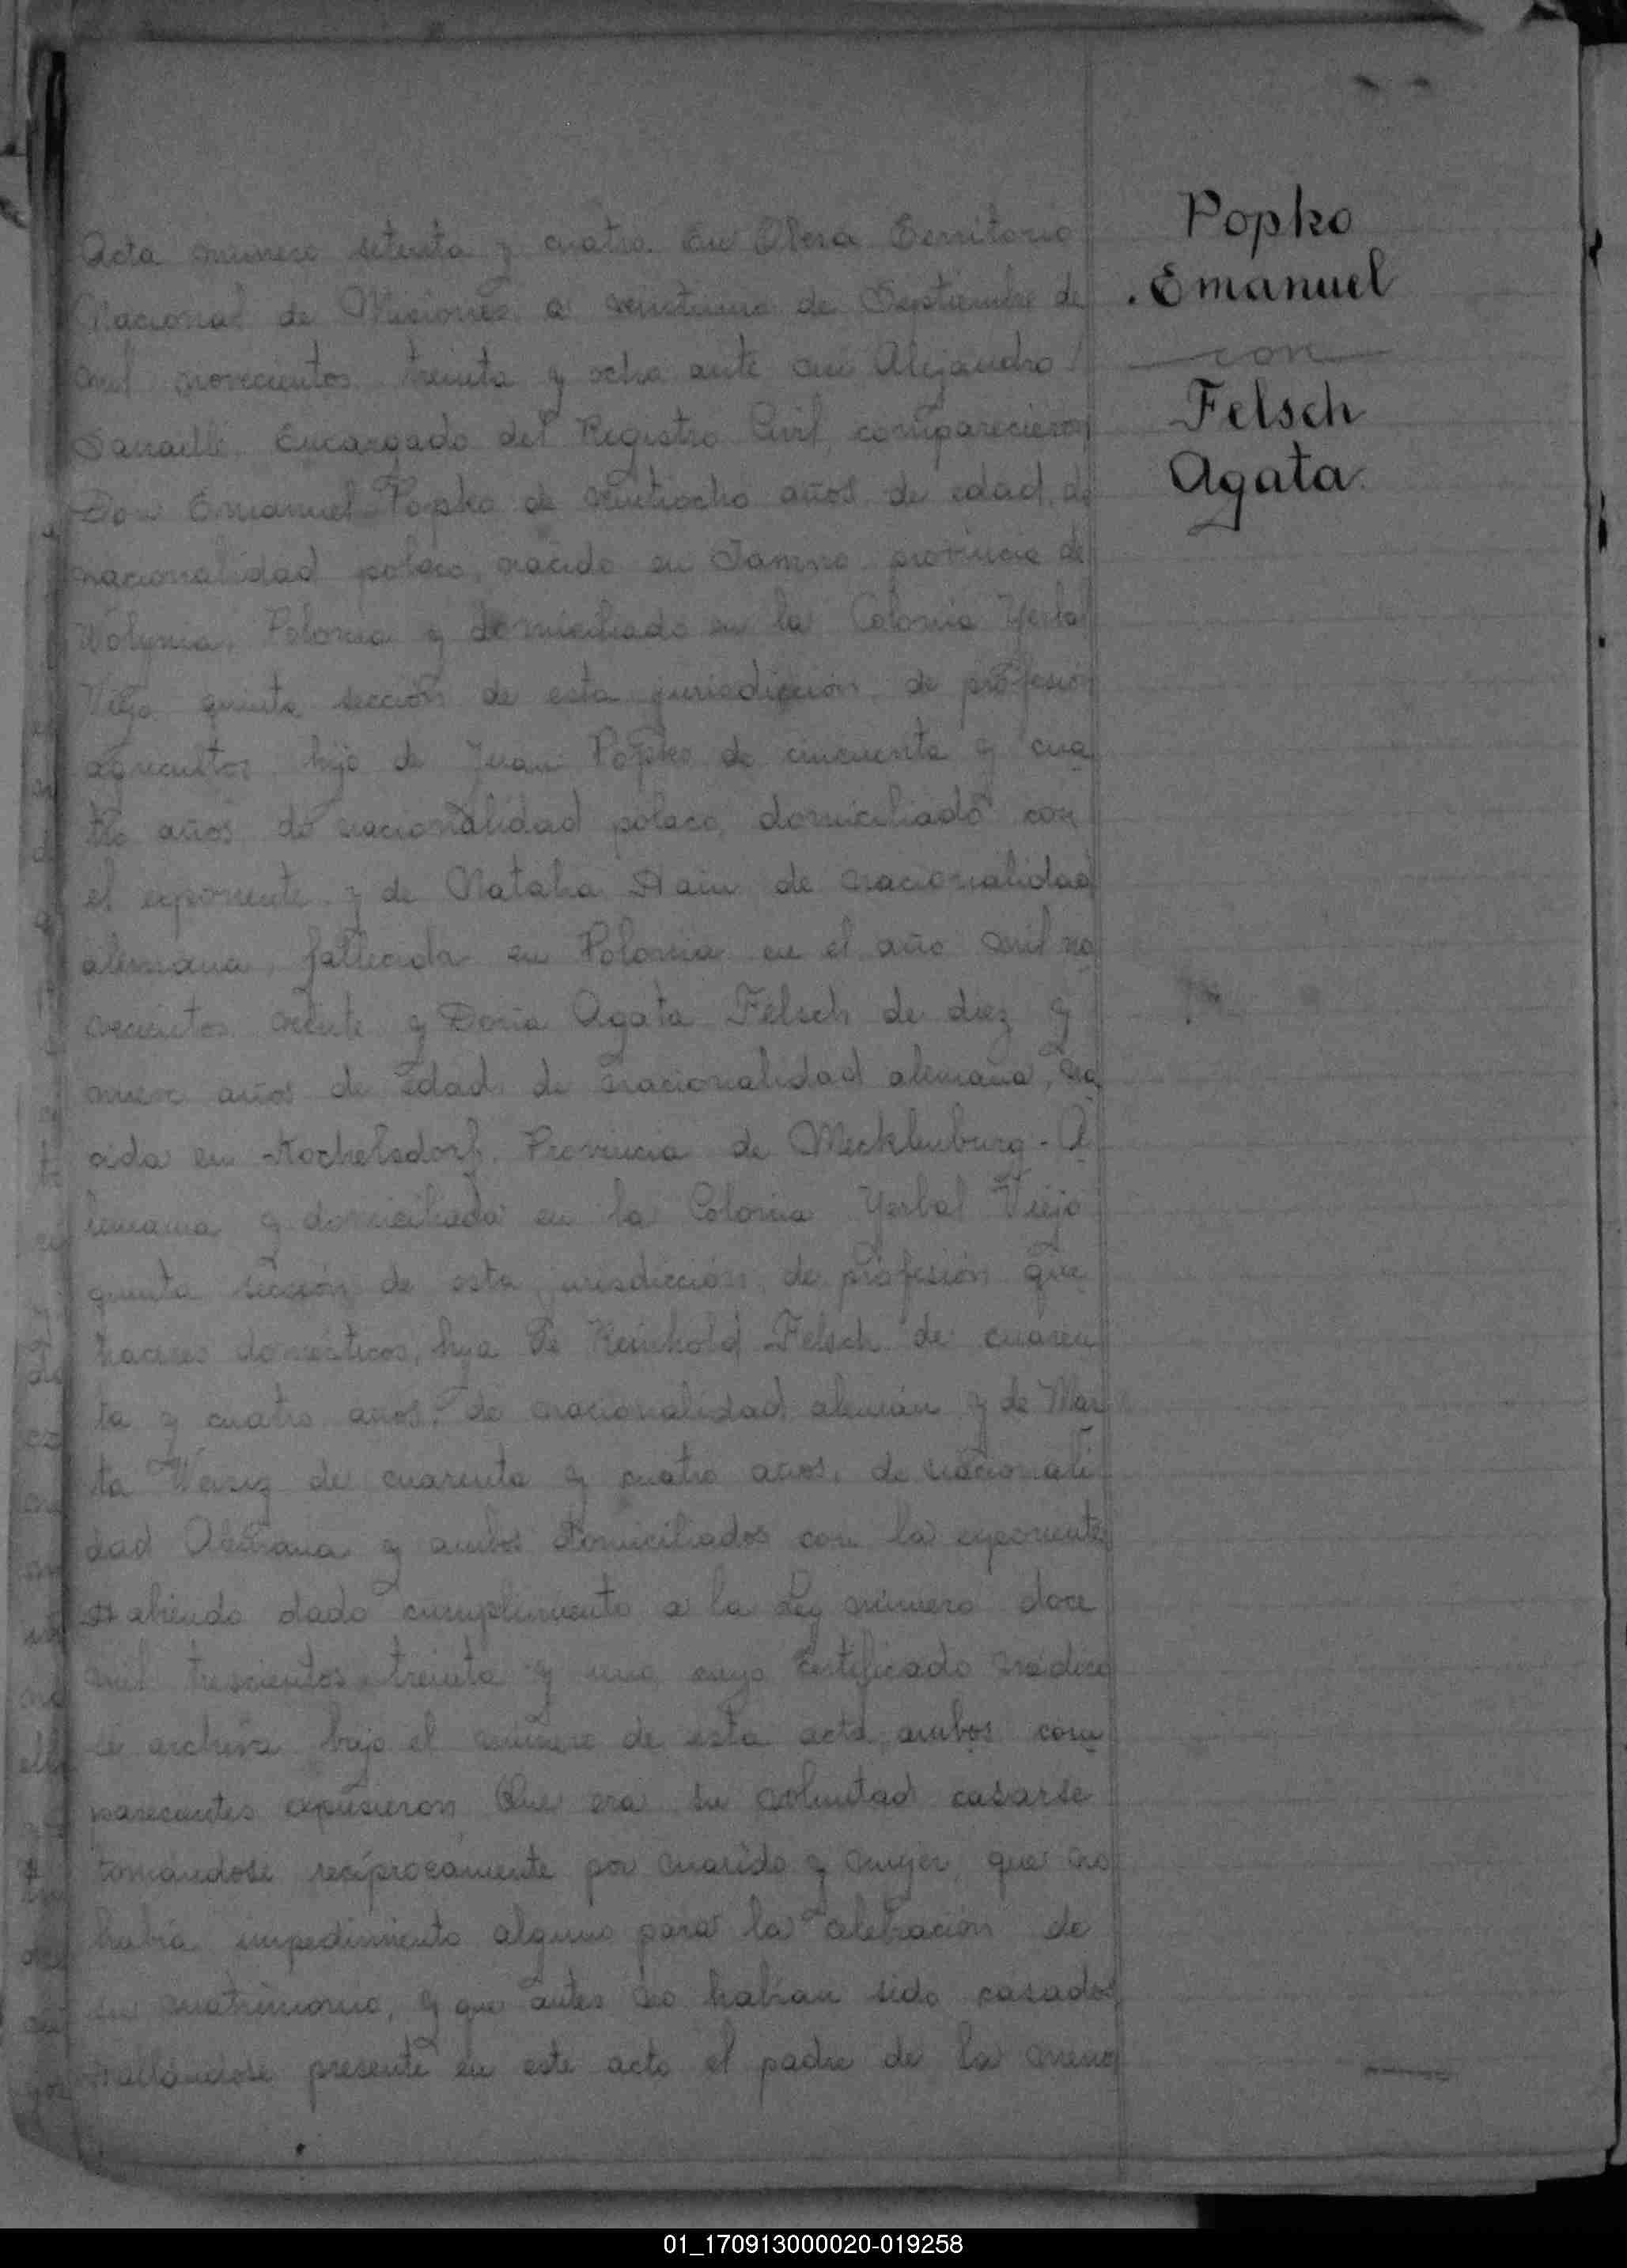 Popko
Emanuel
con
Felsch
Agata
Acta número setenta y cuatro. En Oberá Territorio
Nacional de Misiones a veintiuno de Septiembre de
mil novecientos treinta y ocho ante mi Alejandro
Encargado del Registro Civil, comparecieron
Don Emanuel Popko de veintiocho años de edad, de
nacionalidad polaco, nacido en provincia de
Wolynia, Polonia y domiciliado en la Colonia Yerbal
Viejo quinta sección de esta jurisdicción, de profesión
agricultor, hijo de Juan Popko de cincuenta y cua
tro años de nacionalidad polaco, domiciliado con
el exponente y de Natalia Hain de nacionalidad
alemana, fallecida en Polonia en el año mil no
vecientos veinte y Doña Agata Felsch de diez y
nueve años de edad de nacionalidad alemana, na
cida en Kochelsdorf, Provincia de Mecklenburg - A
lemania y domiciliada en la Colonia Yerbal Viejo
quinta sección de esta jurisdicción, de profesión que
haceres domésticos, hija de Reinhold Felsch de cuaren
ta y cuatro años, de nacionalidad alemán y de Mar
ta de cuarenta y cuatro años, de nacionali
dad Alemana y ambos domiciliados con la exponente
Habiendo dado cumplimiento a la Ley número doce
mil trescientos treinta y uno cuyo certificado médico
se archiva bajo el número de esta acta, ambos com
parecientes expusieron Que era su voluntad casarse
tomándose recíprocamente por marido y mujer, que no
había impedimento alguno para la celebración de
su matrimonio, y que antes no habían sido casados
Hallándose presente en este acto el padre de la meno
01_170913000020-019258